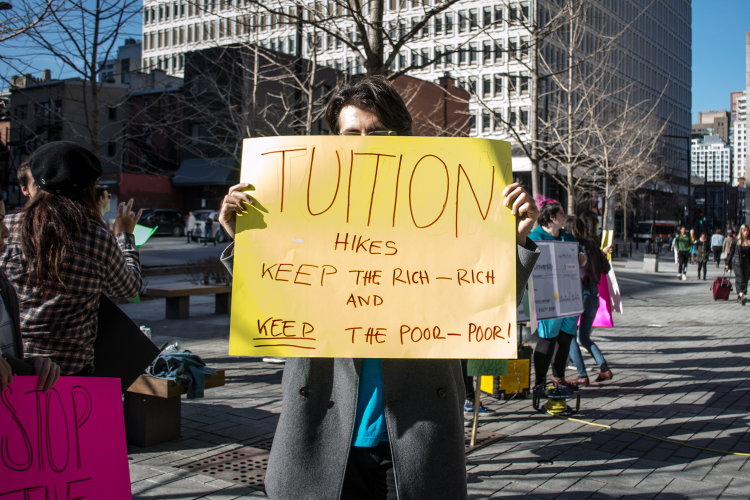 TUITION
HIKES
KEEP THE RICH-RICH
AND
KEEP THE POOR-POOR!
STOP
THE